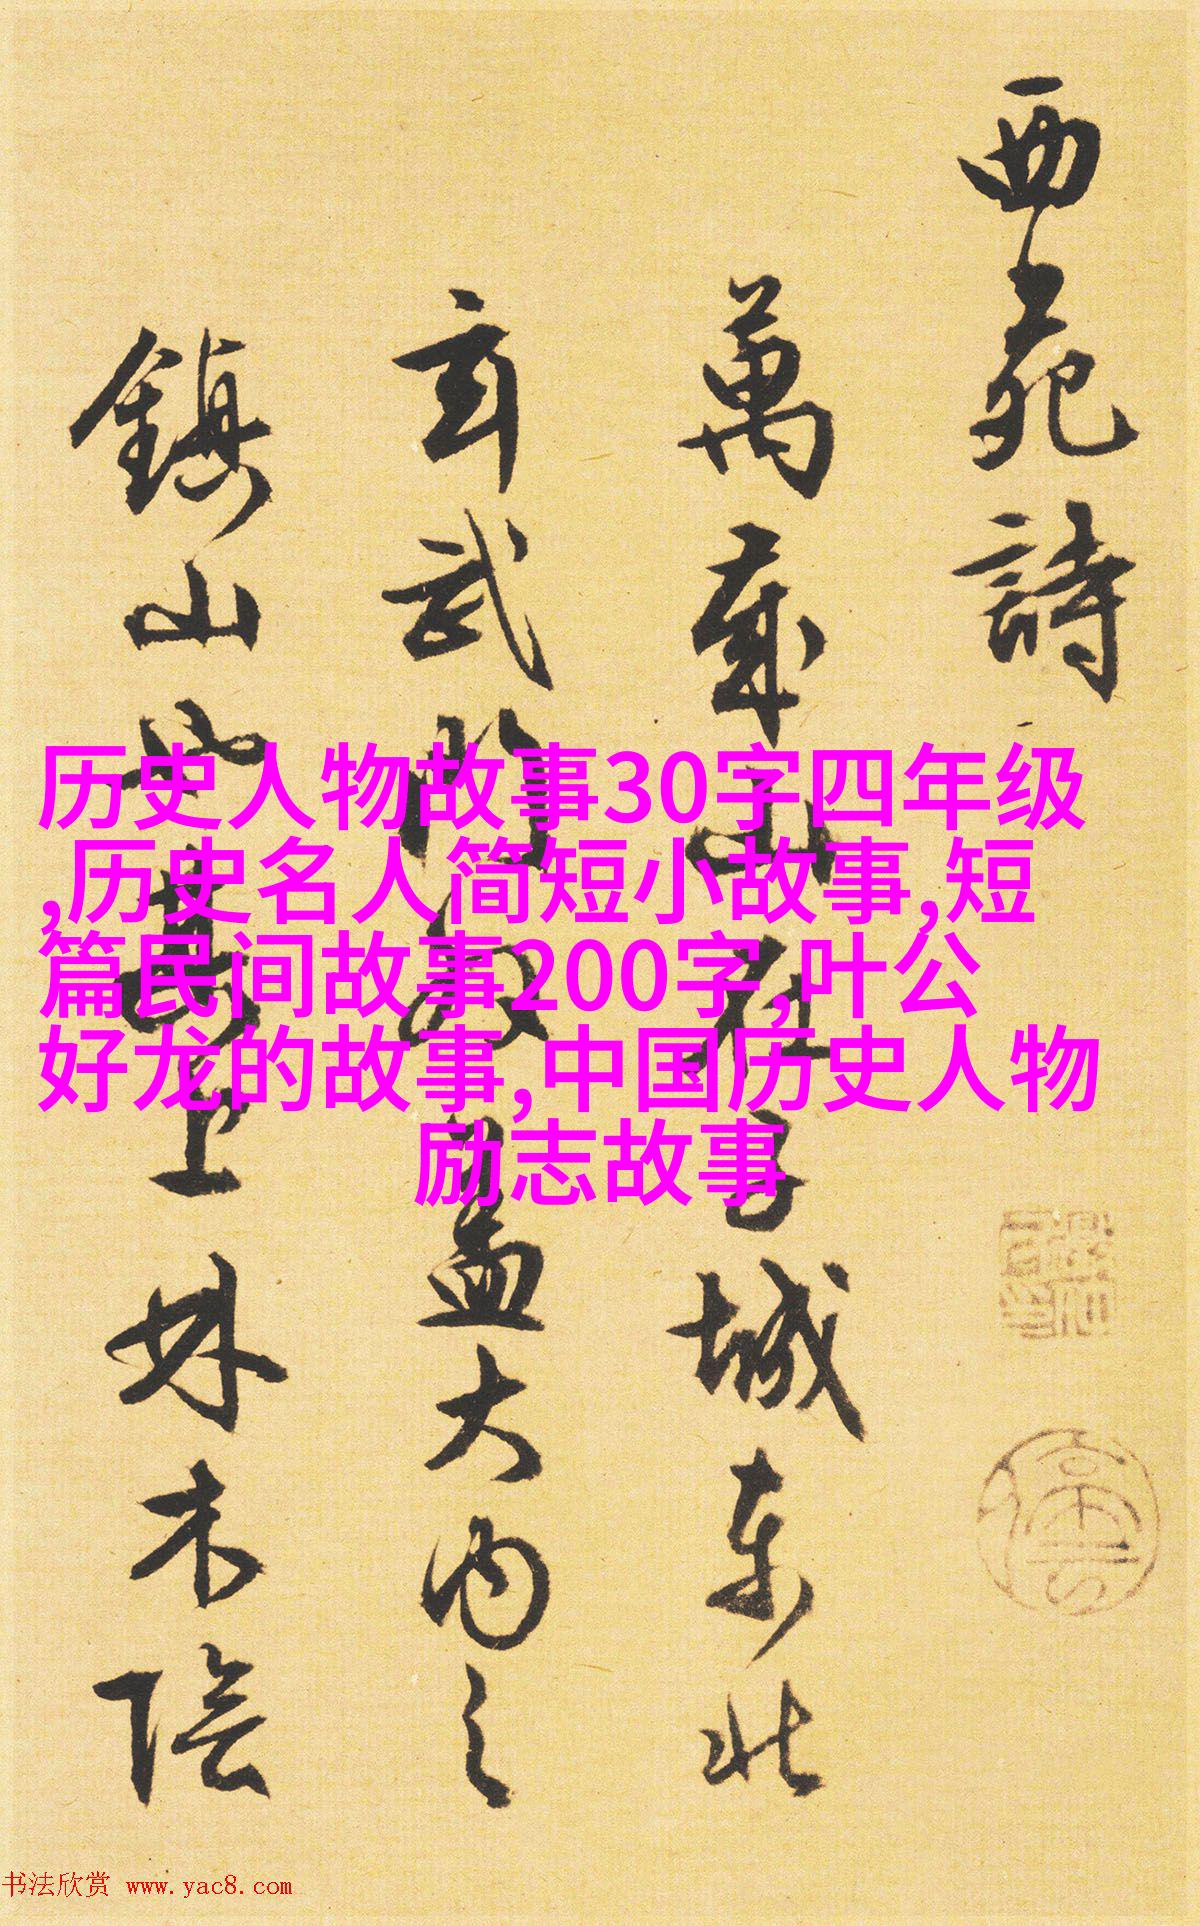 西苑詩
萬歲山在子城東北
玄武門 盖大内之
鎮山也其上林木陰
历史人物故事30字四年级
,历史名人简短小故事,短
篇民间故事200字,叶公
好龙的故事,中国历史人物
励志故事
书法欣赏 www.yac8.com